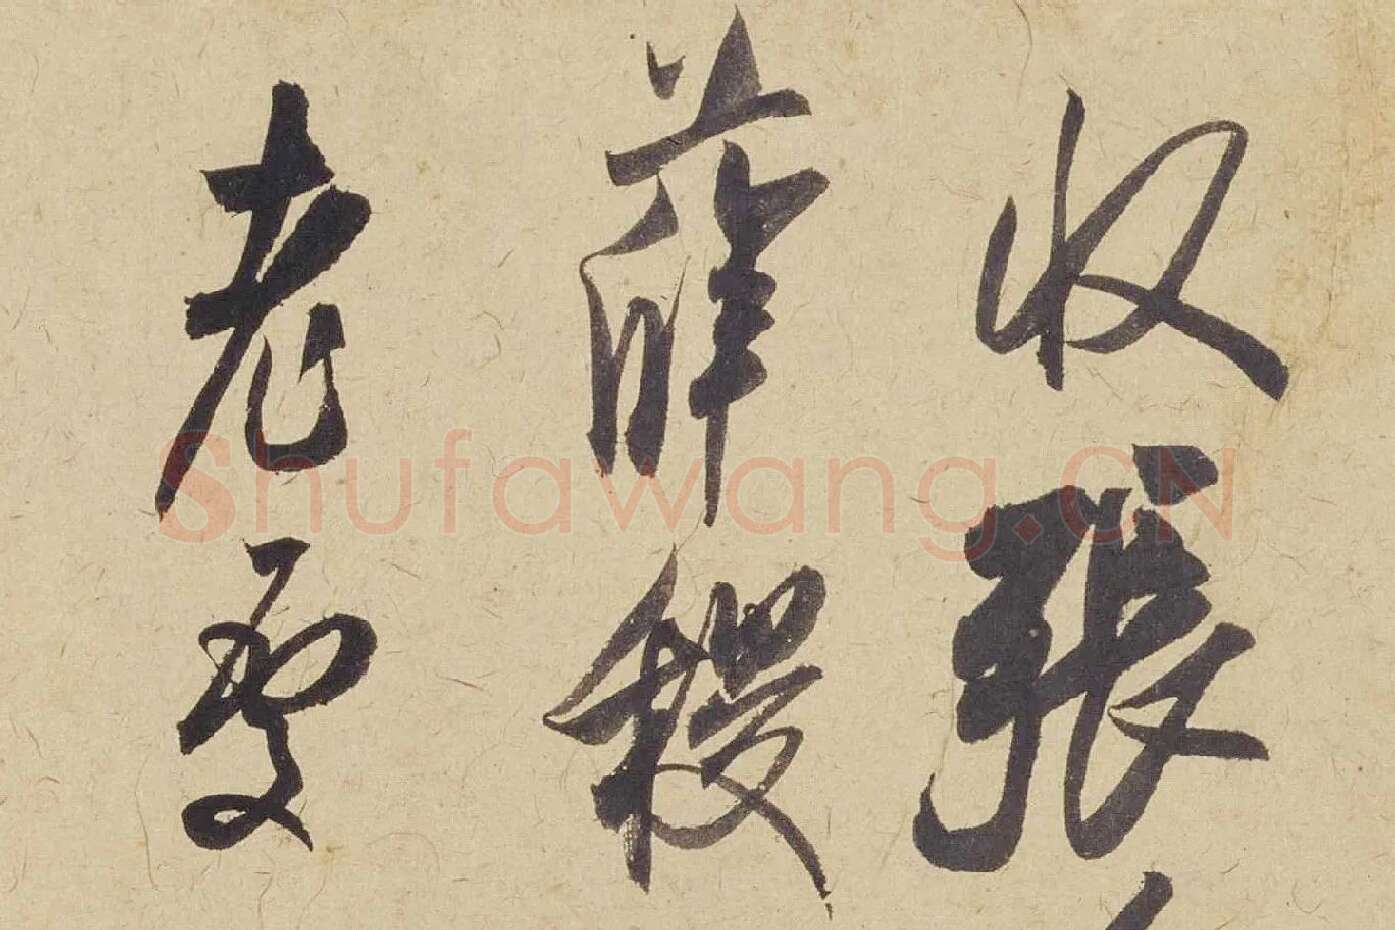 收張
薛稷
老
Shufawang.CN